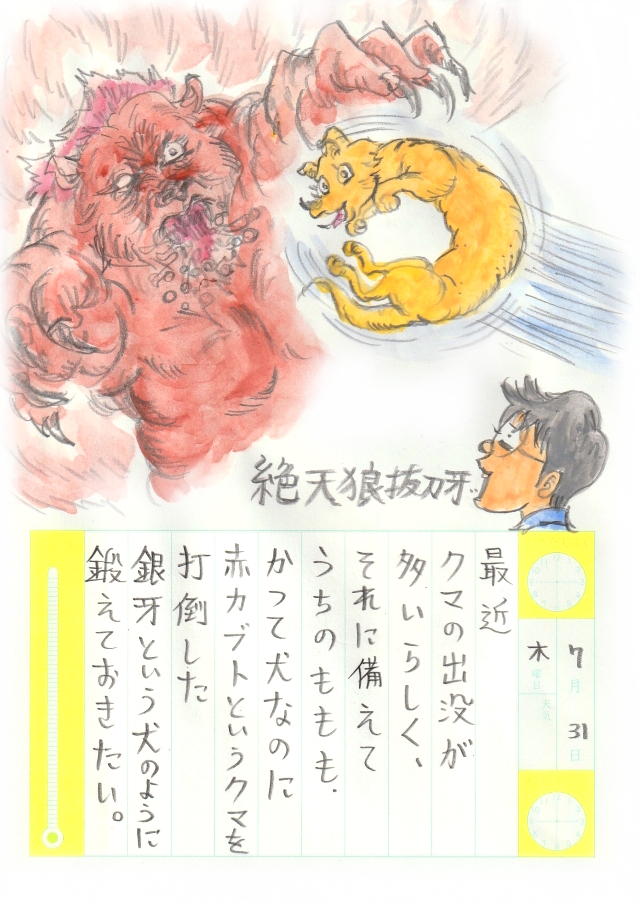 絶天狼抜刀牙..
7月31日
木曜日
天気
最近
クマの出没が
多いらしく、
それに備えて
うちのももも.
かつて犬なのに
赤カブトというクマを
打倒した
銀牙という犬のように
鍛えておきたい。